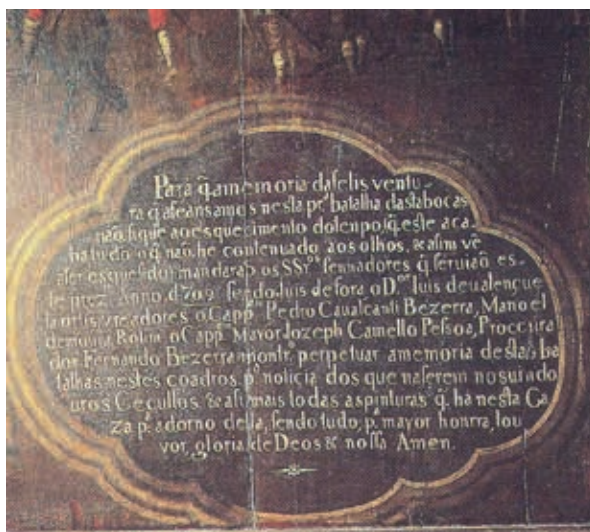 Para q̃ a memoria da felis ventu-
ra q̃ alcansamos nesta pr.ª batalha das tabocas
não fique ao esquecimento do tenpo, q̃ este aca-
ha tudo o q̃ não he contenuado aos olhos, & asim ve
a ser esquesido, mandarão os SSr.es sennadores q̃ seruião es-
te prez. Anno d 1709. sendo Luis de fora o D.or Luis de ualençue
la ortis, vreadores o Capp.m Pedro Caualcanti Bezerra, Manoel
de Rolim o Capp.m Mayor Jozeph Camello Pessoa, Proccura
dor Fernando Bezerra perpetuar a memoria destas ba
talhas nestes coadros p.ª noticia dos que naserem no
uros Cecullos, & asi mais todas as pinturas q̃ ha nesta Ca
za p.ª adorno della, sendo tudo, p.ª mayor honrra, lou
vor, gloria de Deos & nossa Amen.